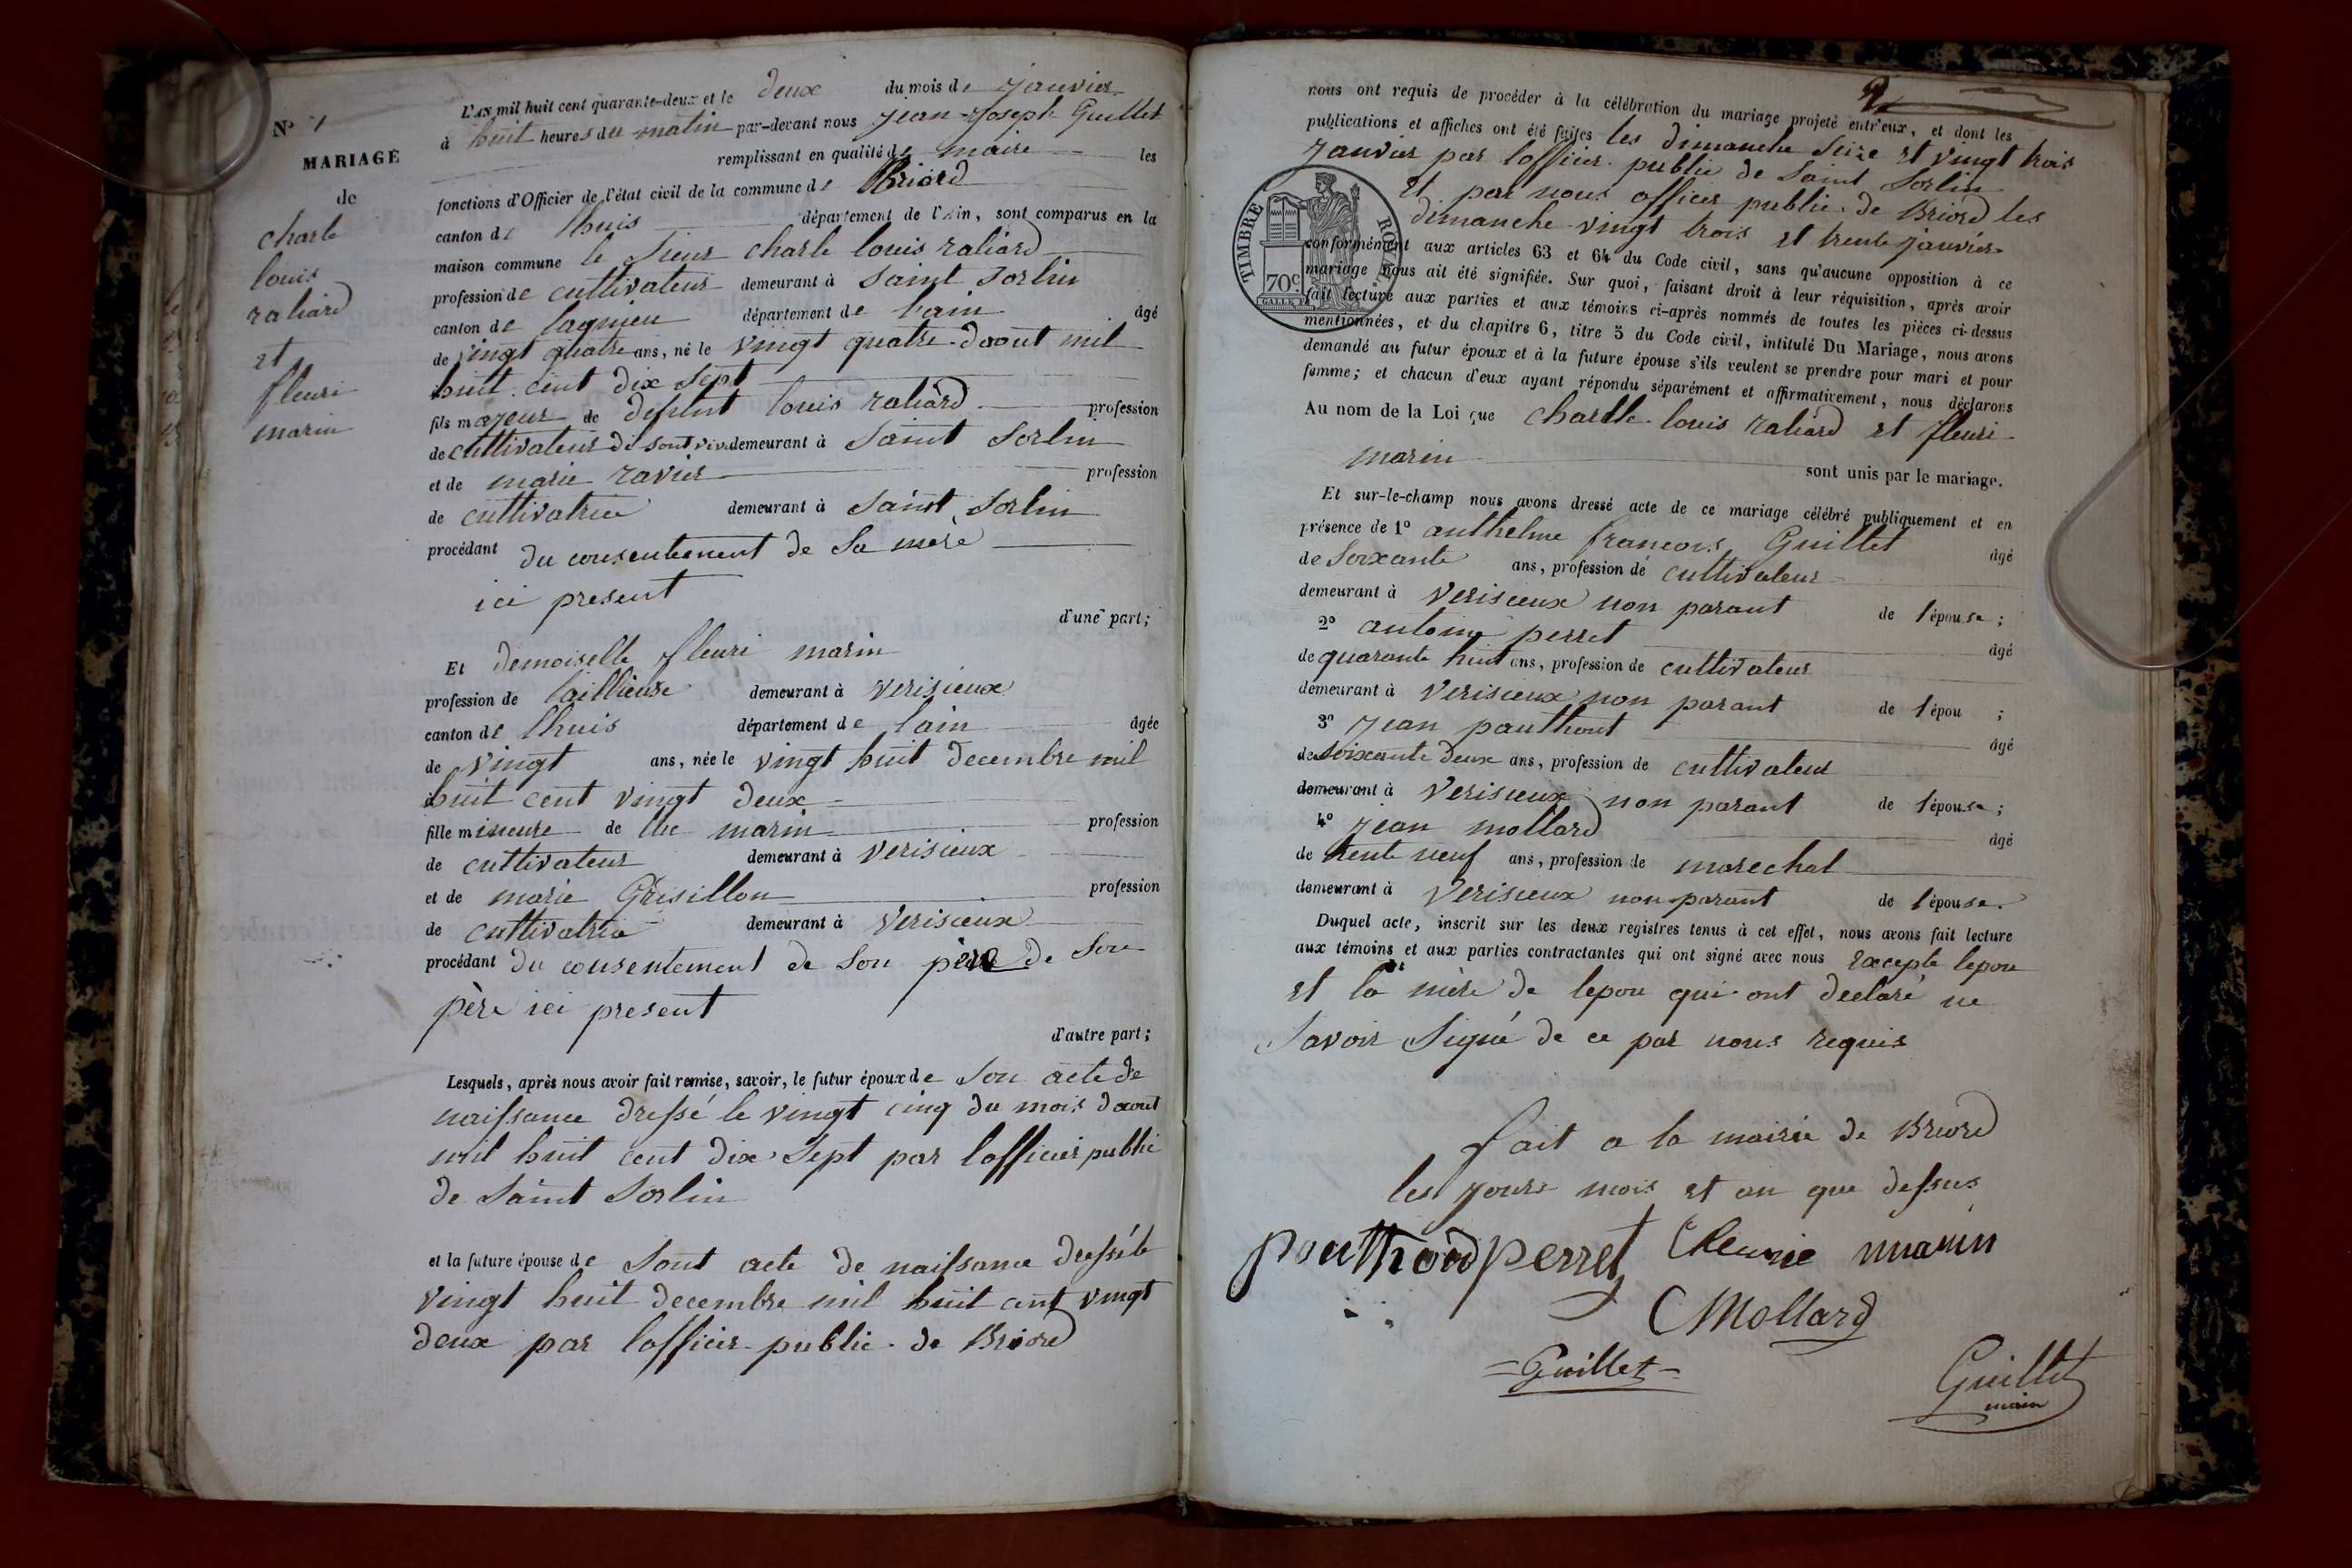 L'AN mil huit cent quarante-deux et le deux du mois de janvier
N° 1
à huit heures du matin par-devant nous jean-joseph Guillet
MARIAGE
remplissant en qualité de maire les
de
fonctions d'Officier de l'état civil de la commune de Briord
charle
canton de lhuis département de l'Ain, sont comparus en la
louis
maison commune le sieur charle louis raliard
raliard
profession de cultivateur demeurant à saint sorlin
canton de lagnieu département de l'ain âgé
et
de vingt quatre ans, né le vingt quatre daout mil
fleuri
huit cent dix sept
marin
fils majeur de defunt louis raliard profession
de cultivateur de sont viv. demeurant à saint sorlin
et de marie ravier profession
de cultivatrice demeurant à saint sorlin
procédant du consentement de sa mère
ici present
d'une part;
Et demoiselle fleuri marin
profession de taillieuse demeurant à verisieux
canton de lhuis département de lain âgée
de vingt ans, née le vingt huit decembre mil
huit cent vingt deux
fille mineure de luc marin profession
de cultivateur demeurant à verisieux
et de marie Grisillon profession
de cultivatrice demeurant à verisieux
procédant du consentement de son père de son
père ici present
d'autre part;
Lesquels, après nous avoir fait remise, savoir, le futur époux de son acte de
naissance dressé le vingt cinq du mois daout
mil huit cent dix sept par lofficier public
de saint sorlin
et la future épouse de sont acte de naissance dressé le
vingt huit decembre mil huit cent vingt
deux par lofficier public de Briord
2
nous ont requis de procéder à la célébration du mariage projeté entr'eux, et dont les
publications et affiches ont été faites les dimanche seize et vingt trois
janvier par lofficier public de saint sorlin
et par nous officier public de Briord les
dimanche vingt trois et trente janvier
TIMBRE ROYAL
70c.
conformément aux articles 63 et 64 du Code civil, sans qu'aucune opposition à ce
mariage nous ait été signifiée. Sur quoi, faisant droit à leur réquisition, après avoir
fait lecture aux parties et aux témoins ci-après nommés de toutes les pièces ci-dessus
mentionnées, et du chapitre 6, titre 5 du Code civil, intitulé Du Mariage, nous avons
demandé au futur époux et à la future épouse s'ils veulent se prendre pour mari et pour
femme; et chacun d'eux ayant répondu séparément et affirmativement, nous déclarons
Au nom de la Loi que charlle louis raliard et fleuri
marin sont unis par le mariage.
Et sur-le-champ nous avons dressé acte de ce mariage célébré publiquement et en
présence de 1° anthelme francois Guillet âgé
de soixante ans, profession de cultivateur
demeurant à verisieux non parant de l'épouse;
2° antoine perret âgé
de quarante huit ans, profession de cultivateur
demeurant à verisieux non parant de l'épou ;
3° jean pauthout âgé
de soixante deux ans, profession de cultivateur
demeurant à verisieux non parant de l'épouse;
4° jean mollard âgé
de trente neuf ans, profession de marechal
demeurant à verisieux non parant de l'épouse.
Duquel acte, inscrit sur les deux registres tenus à cet effet, nous avons fait lecture
aux témoins et aux parties contractantes qui ont signé avec nous excepte lepou
et la mère de lepou qui ont declaré ne
savoir signé de ce par nous requis
fait a la mairie de Briord
les jours mois et an que dessus
pauthoud perret fleurie marin
Mollard
Guillet
Guillet
maire